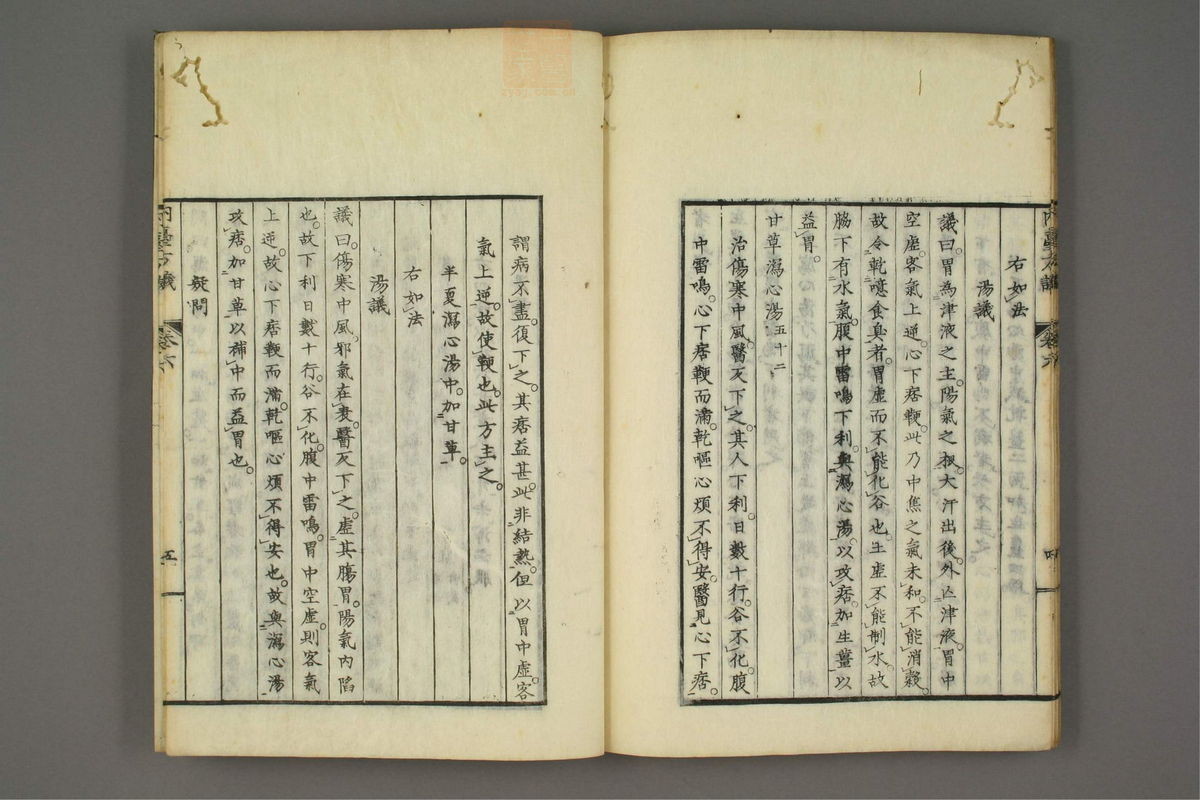 右如法
湯議
議曰。胃為津液之主。陽氣之根。大汗出後。外亡津液。胃中
空虛。客氣上逆。心下痞鞕。此乃中焦之氣未和。不能消穀。
故令乾噫食臭者。胃虛而不能化穀也。土虛不能制水。故
脇下有水氣。腹中雷鳴下利。與瀉心湯。以攻痞。加生薑以
益胃。
甘草瀉心湯五十二
治傷寒中風。醫反下之。其人下利。日數十行。谷不化。腹
中雷鳴。心下痞鞕而滿。乾嘔心煩不得安。醫見心下痞。
謂病不盡。復下之。其痞益甚。此非結熱。但以胃中虛。客
氣上逆。故使鞕也。此方主之。
半夏瀉心湯中。加甘草。
右如法
湯議
議曰。傷寒中風。邪氣在表。醫反下之。虛其腸胃。陽氣內陷
也。故下利日數十行。谷不化。腹中雷鳴。胃中空虛。則客氣
上逆。故心下痞鞕而滿。乾嘔心煩不得安也。故與瀉心湯
攻痞。加甘草以補中而益胃也。
疑問
內臺方議
卷六
五